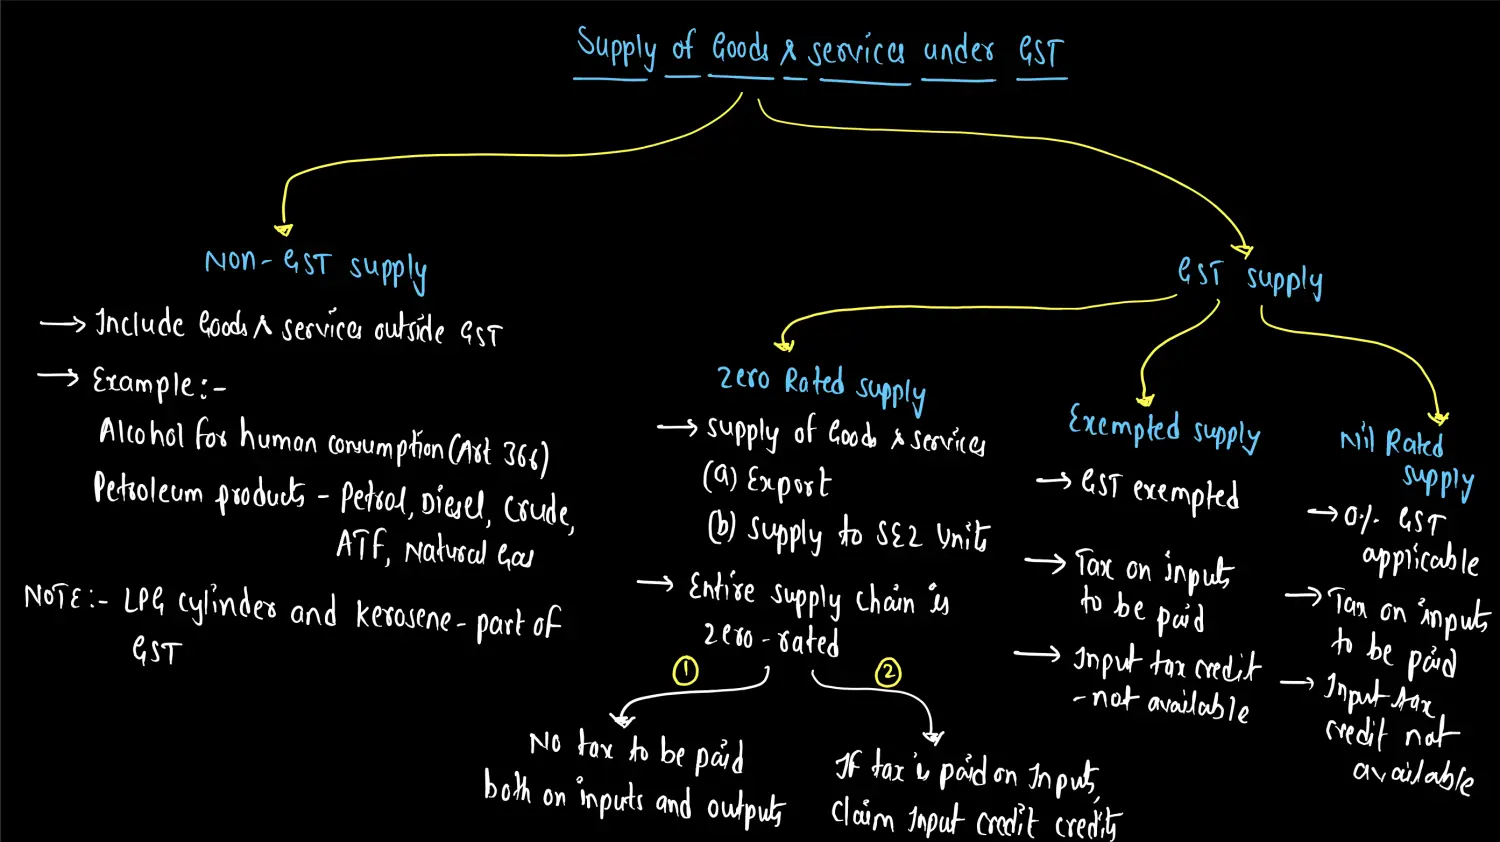 Supply of Goods & services under GST
Non-GST supply
→ Include Goods & services outside GST
→ Example:-
Alcohol for human consumption (Art 366)
Petroleum products - Petrol, Diesel, Crude,
ATF, Natural Gas
NOTE:- LPG cylinder and kerosene - part of
GST
GST supply
Zero Rated supply
→ supply of Goods & services
(a) Export
(b) supply to SEZ Units
→ Entire supply chain is
zero-rated
1
No tax to be paid
both on inputs and outputs
2
If tax is paid on Inputs,
claim Input credit credits
Exempted supply
→ GST exempted
→ Tax on inputs
to be paid
→ Input tax credit
- not available
Nil Rated
supply
→ 0% GST
applicable
→ Tax on inputs
to be paid
→ Input tax
credit not
available